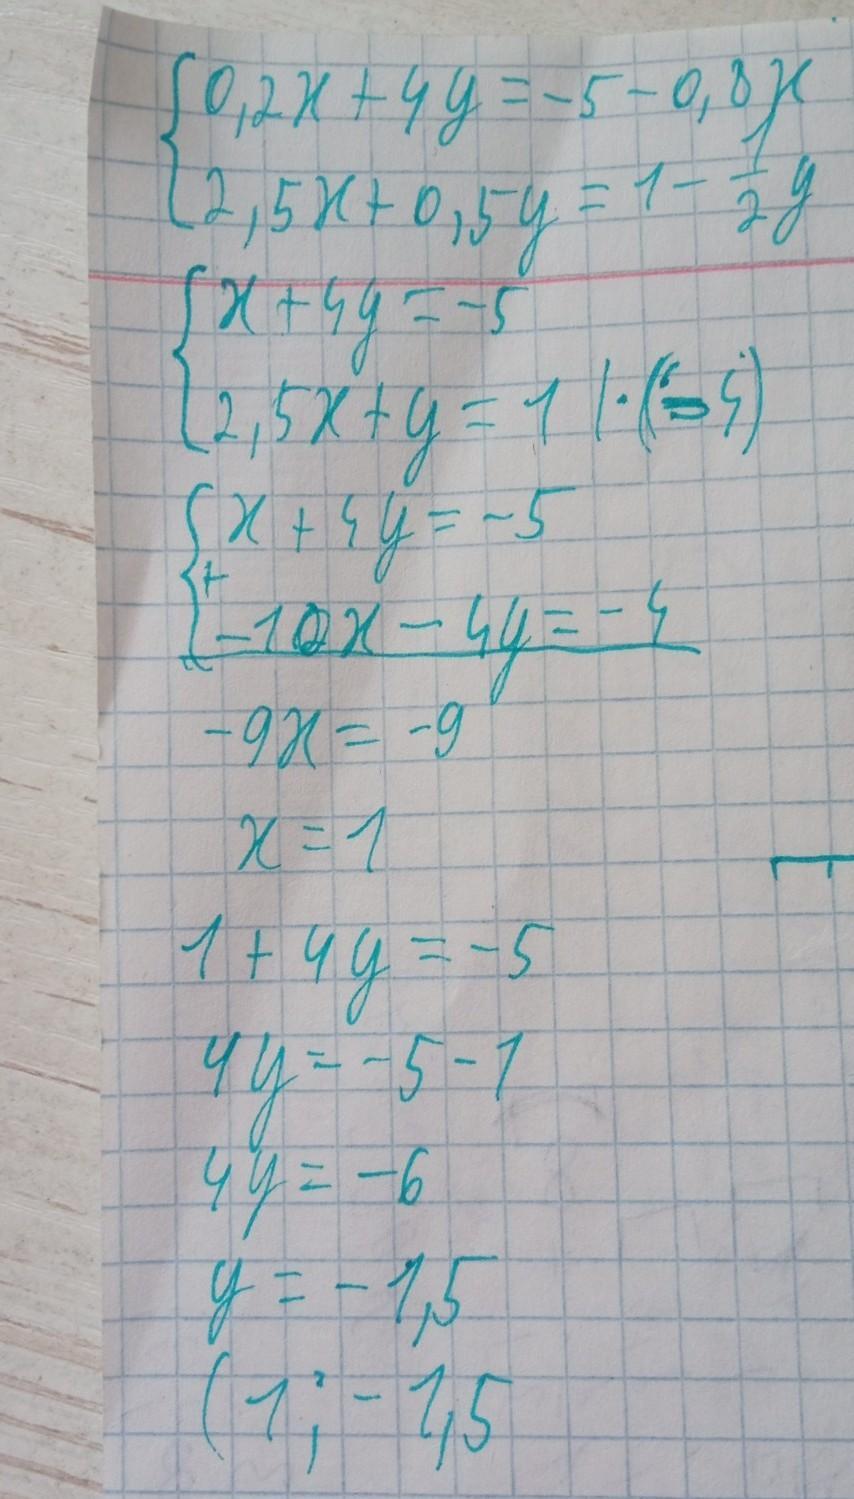 {0,2x + 4y = -5 - 0,8x
{2,5x + 0,5y = 1 - 1/2 y
{x + 4y = -5
{2,5x + y = 1 | · (-4)
{x + 4y = -5
+
{-10x - 4y = -4
-9x = -9
x = 1
1 + 4y = -5
4y = -5 - 1
4y = -6
y = -1,5
(1; -1,5